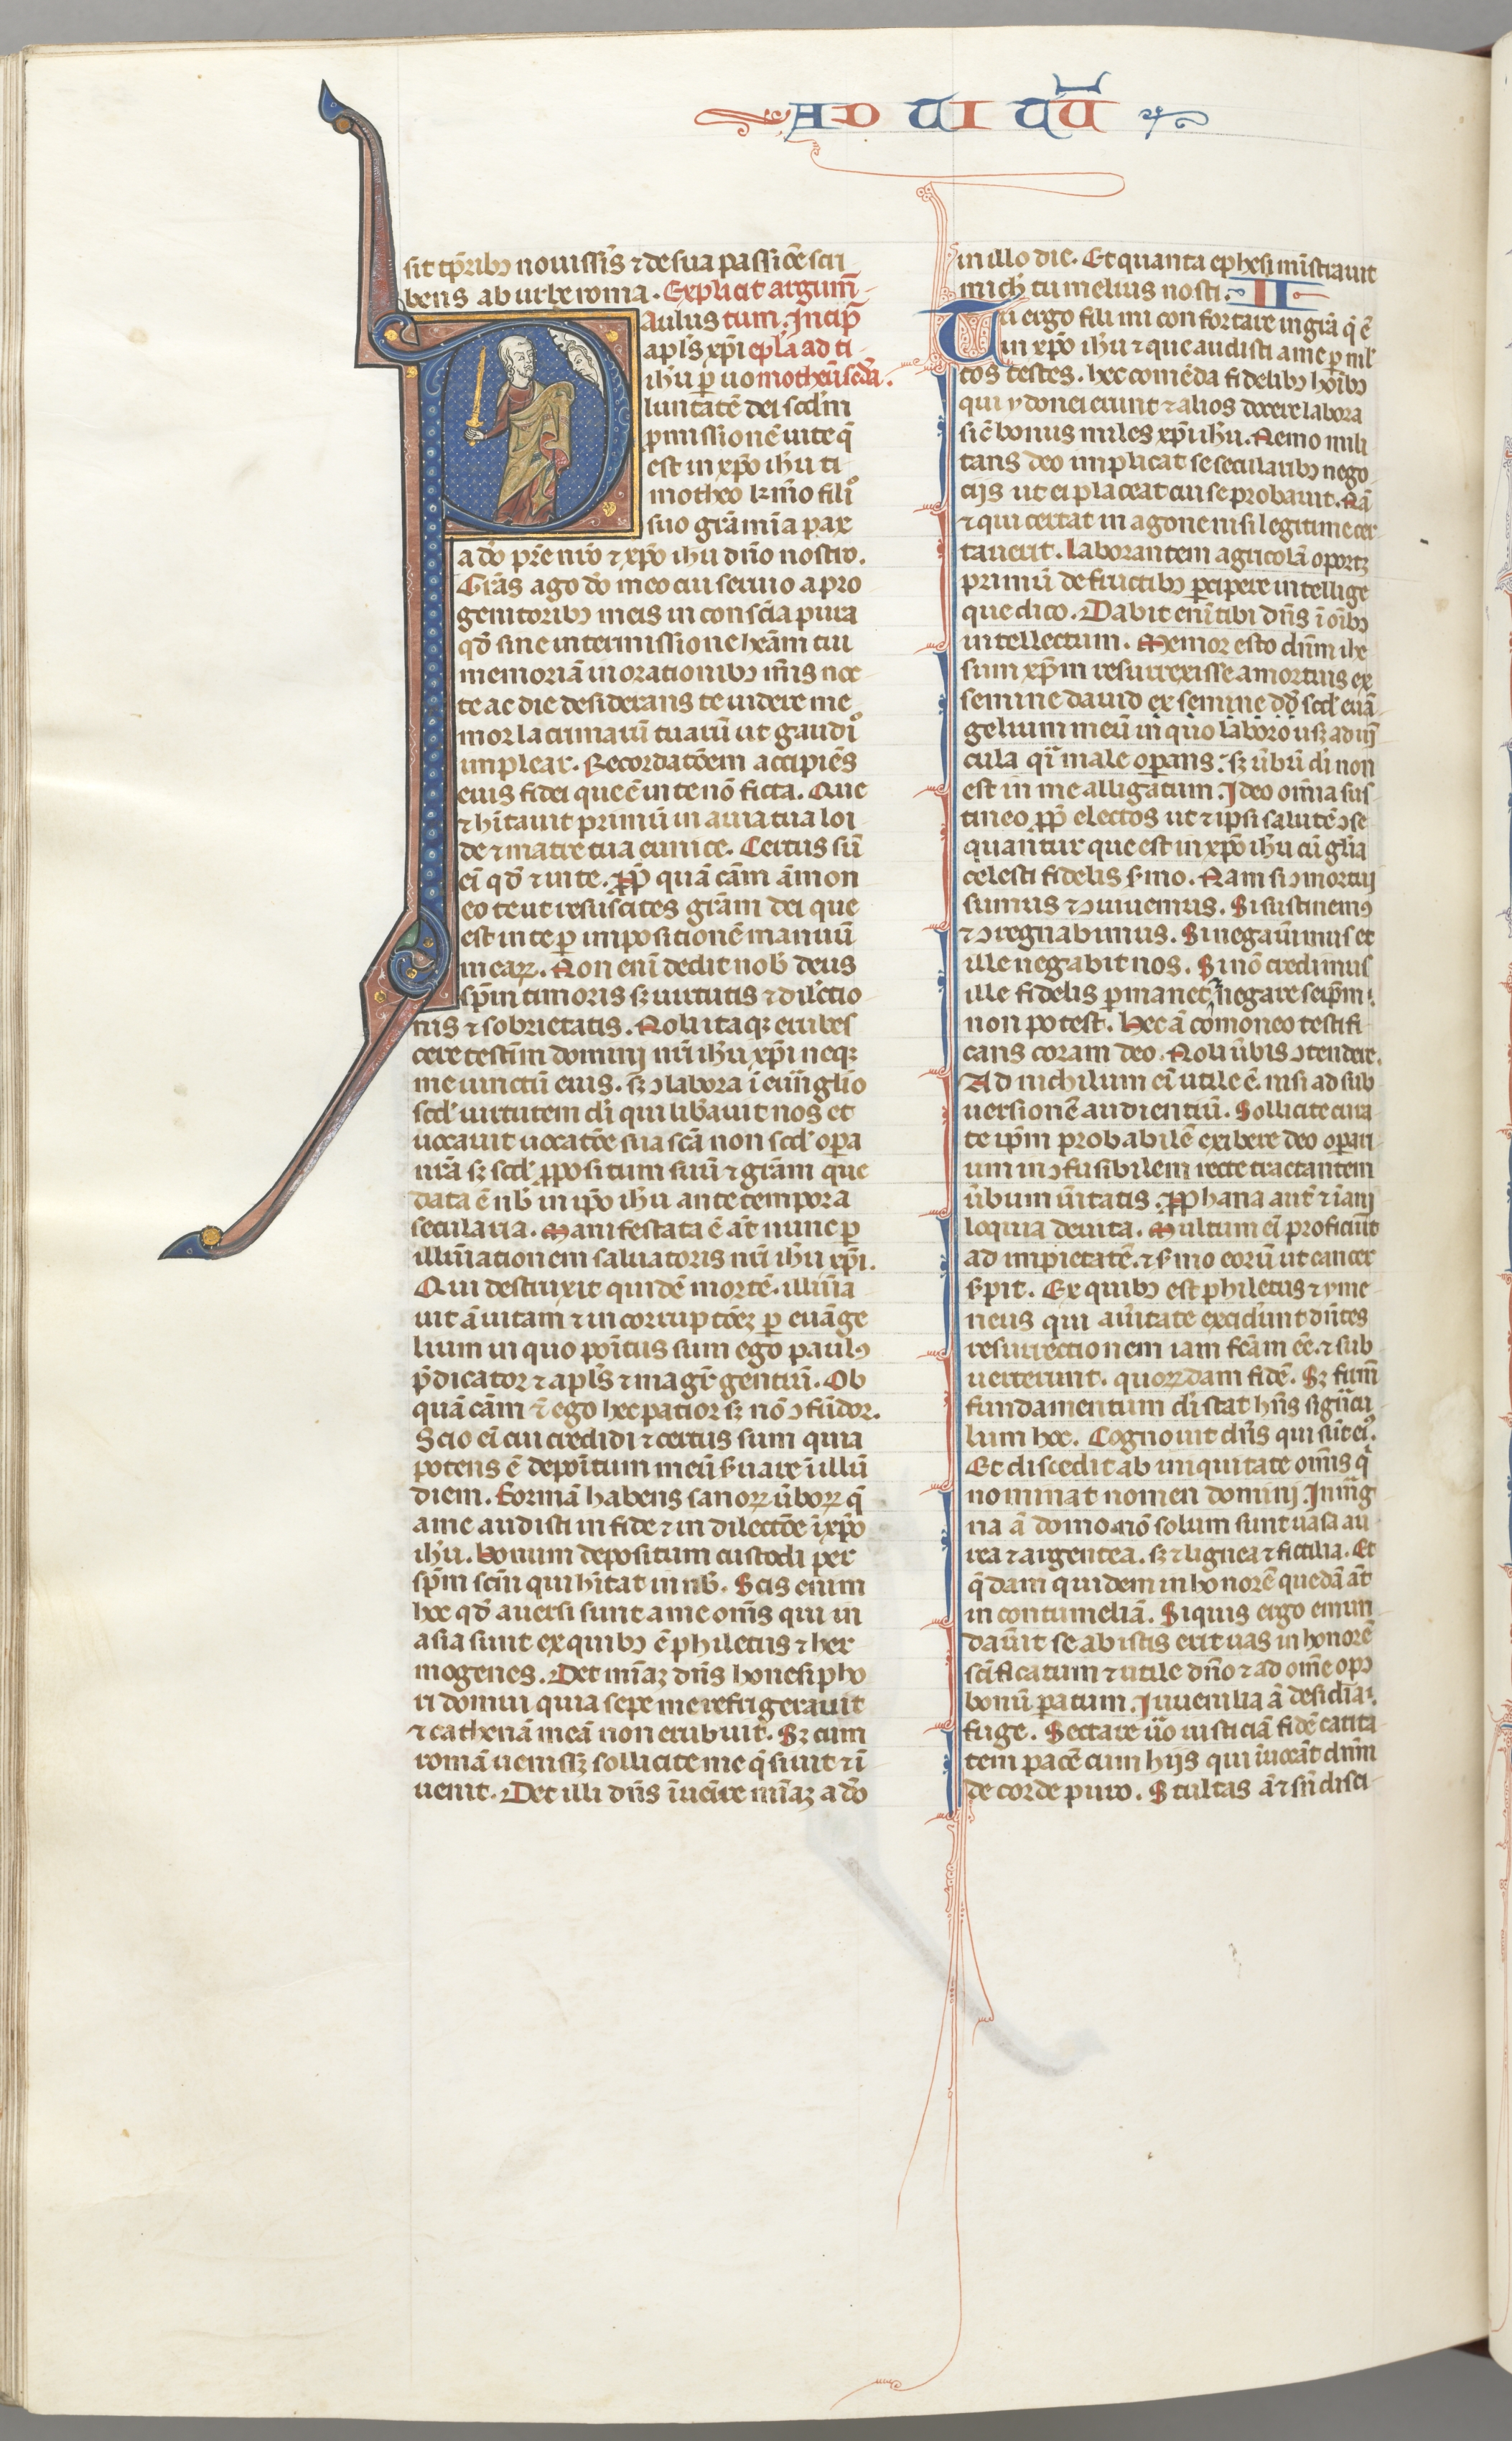 AD TI TŪ
sit tp̄ribꝫ nouissis̄ ⁊ de sua passiōe scri
bens ab urbe roma. Explicit argum̄
Paulus tum. Incip̄
apl̄s xp̄i ep̄la ad ti
ih̄u p̲ uo motheū sc̄da.
luntatē dei scd̄m
ꝓmissionē uite q̄
est in xp̄o ih̄u ti
motheo kr̄mo filio
suo grā mīa pax
a dō pr̄e nr̄o ⁊ xp̄o ih̄u dn̄o nostro.
Grās ago dō meo cui seruio a pro
genitoribꝫ meis in consc̄ia pura
qd̄ sine intermissione heām tui
memoriā in orationibꝫ m̄is noc
te ac die desiderans te uidere me
mor lacrimarū tuarū ut gaudio
implear. Recordatōem accipiēs
eius fidei que ē in te nō ficta. Que
⁊ hītauit primū in auia tua loi
de ⁊ matre tua eunice. Certus sū
eī qd̄ ⁊ in te. ꝓp̄ quā cām āmon
eo te ut resuscites grām dei que
est in te p̲ impositionē manuū
mearꝝ. Non enī dedit nob̄ deus
sp̄m timoris sꝫ uirtutis ⁊ dilectio
nis ⁊ sobrietatis. Noli itaqꝫ erubes
cere testīm domini nr̄i ih̄u xp̄i neqꝫ
me uinctū eius. sꝫ ꝯlabora ī euāglio
scd̄ uirtutem dī qui lib̄auit nos et
uocauit uocatōe sua sc̄a non scd̄ opa
nr̄a sꝫ scd̄ ꝓpositum suū ⁊ grām que
data ē nb̄ in xp̄o ih̄u ante tempora
secularia. Manifestata ē āt nunc p̲
illūinationem saluatoris nr̄i ih̄u xp̄i.
Qui destruxit quidē mortē. illūīa
uit ā uitam ⁊ incorruptōeꝫ p̲ euāge
lium in quo poītus sum ego paulꝰ
p̄dicator ⁊ apl̄s ⁊ magr̄ gentiū. Ob
quā cām ⁊ ego hec patior sꝫ nō ꝯfūdor.
Scio eī cui credidi ⁊ certus sum quia
potens ē depoītum meū ẜuare ī illū
diem. Formā habens sanorꝝ ūborꝝ q̄
a me audisti in fide ⁊ in dilectōe ī xp̄o
ih̄u. Bonum depositum custodi per
sp̄m sc̄m qui hītat in nb̄. Scis enim
hoc qd̄ auersi sunt a me om̄s qui in
asia sunt ex quibꝫ ē philetus ⁊ her
mogenes. Det mīaꝫ dn̄s honesipho
ri domui quia sepe me refrigerauit
⁊ cathenā meā non erubuit. Sꝫ cum
romā uenissꝫ sollicite me q̄siuit ⁊ ī
uenit. Det illi dn̄s īuenīre mīaꝫ a dō
in illo die. Et quanta ephesi mīstrauit
mich̄ tu melius nosti. II
Tu ergo fili mi confortare in grā q̄ ē
in xp̄o ih̄u ⁊ que audisti a me p̲ ml̄
tos testes. hec comēda fidelibꝫ hoībꝫ
qui ydonei erunt ⁊ alios docere labora
sic̄ bonus miles xp̄i ih̄u. Nemo mili
tans deo implicat se secularibꝫ nego
ciis ut ei placeat cui se probauit. Nā
⁊ qui certat in agone nisi legitime cer
tauerit. Laborantem agricolā oportꝫ
primū de fructibꝫ p̲cipere intellige
que dico. Dabit enī tibi dn̄s ī oībꝫ
intellectum. Memor esto dn̄m ihe
sum xp̄m resurrexisse a mortuis ex
semine dauid ex semine dd̄ scd̄ euā
gelium meū in quo laboro usꝫ ad uī
cula q̄ī male operans. sꝫ ūbū dī non
est in me alligatum. Ideo om̄ia sus
tineo ꝓp̄ electos ut ⁊ ipsi salutē ꝯse
quantur que est in xp̄o ih̄u cū glīa
celesti fidelis ẜmo. Nam si ꝯmortui
sumus ⁊ ꝯuiuemus. Si sustinemꝰ
⁊ ꝯregnabimus. Si negaūimus et
ille negabit nos. Si nō credimus
ille fidelis p̲manet. negare seip̄m
non potest. Hec ā cōmoneo testifi
cans coram deo. Noli ūbis ꝯtendere.
Ad nichilum eī utile ē. nisi ad sub
uersionē audientiū. Sollicite cura
te ip̄m probabilē exibere deo opari
um inꝯfusibilem recte tractantem
ūbum ūitatis. ꝓphana aut̄ ⁊ īani
loquia deuita. Multum eī proficiūt
ad impietatē. ⁊ ẜmo eorū ut cancer
ẜpit. Ex quibꝫ est philetus ⁊ yme
neus qui a ūitate excidūt dn̄tes
resurrectionem iam fc̄am eē. ⁊ sub
uerterunt. quorꝝdam fidē. Sꝫ firm̄
fundamentum dī stat hn̄s signacu
lum hoc. Cognouit dn̄s qui sūt eiꝰ.
Et discedit ab iniquitate om̄is q̄
nominat nomen domini. In mag
na ā domo. nō solum sunt uasa au
rea ⁊ argentea. sꝫ ⁊ lignea ⁊ fictilia. Et
q̄dam quidem in honorē quedā āt
in contumeliā. Siquis ergo emun
daūit se ab istis erit uas in honorē
sc̄ificatum ⁊ utile dn̄o ⁊ ad om̄e opꝫ
bonū paratum. Iuuenilia ā desidia
fuge. Sectare ūo iusticiā fidē carita
tem pacē cum hiis qui īuocāt dn̄m
de corde puro. Stultas ā ⁊ sn̄ disci